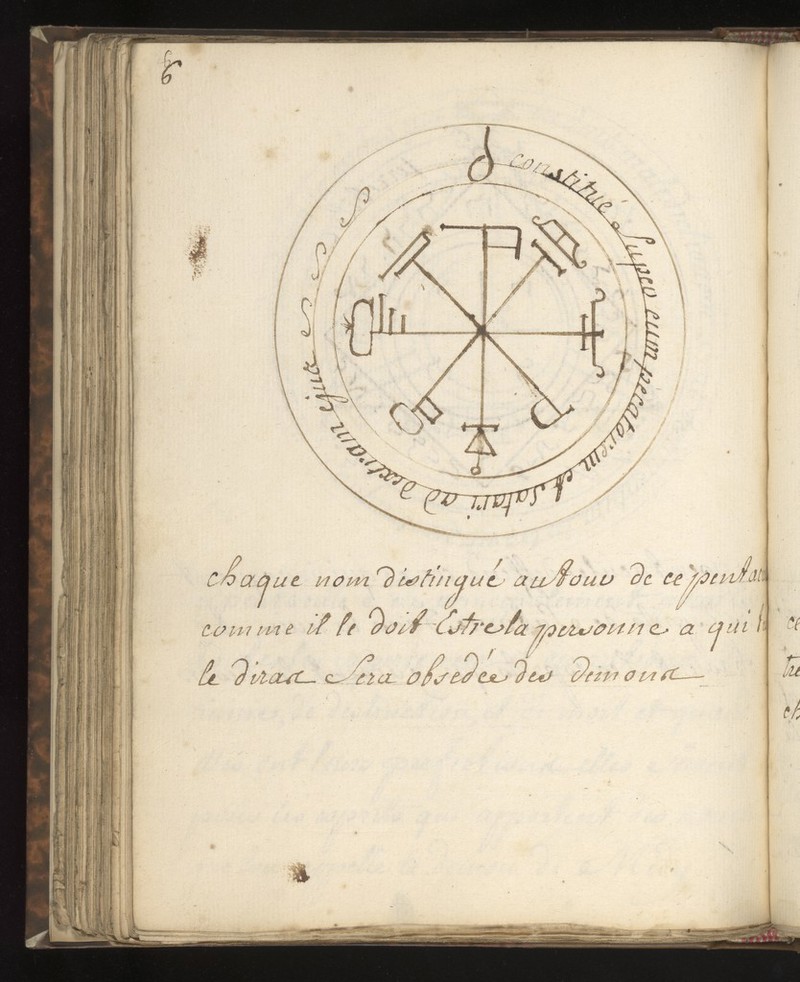 6
constitué super eum pecatorem et satari ad dextram ejus
chaque nom distingué autour de ce pentac
comme il le doit Estre la personne a qui
le diras Sera obsedée des demons